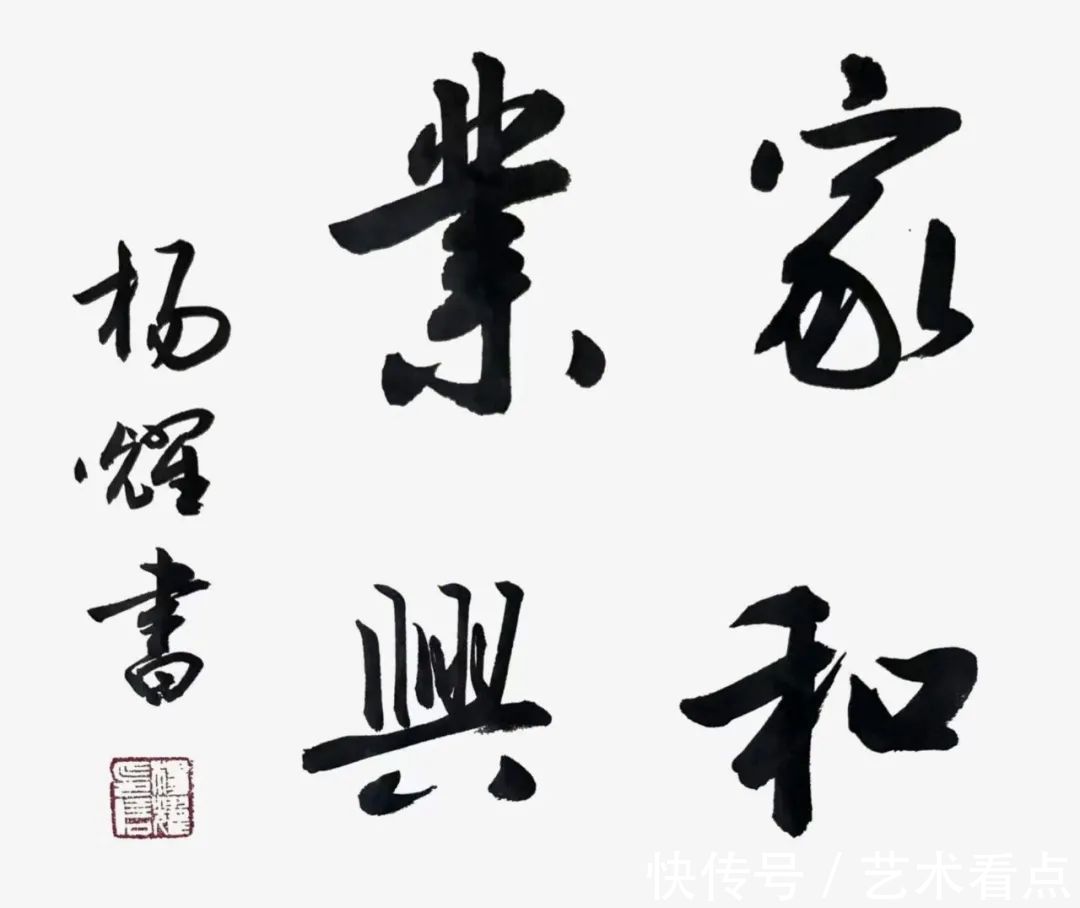 家和
業興
杨耀書
快传号 / 艺术看点